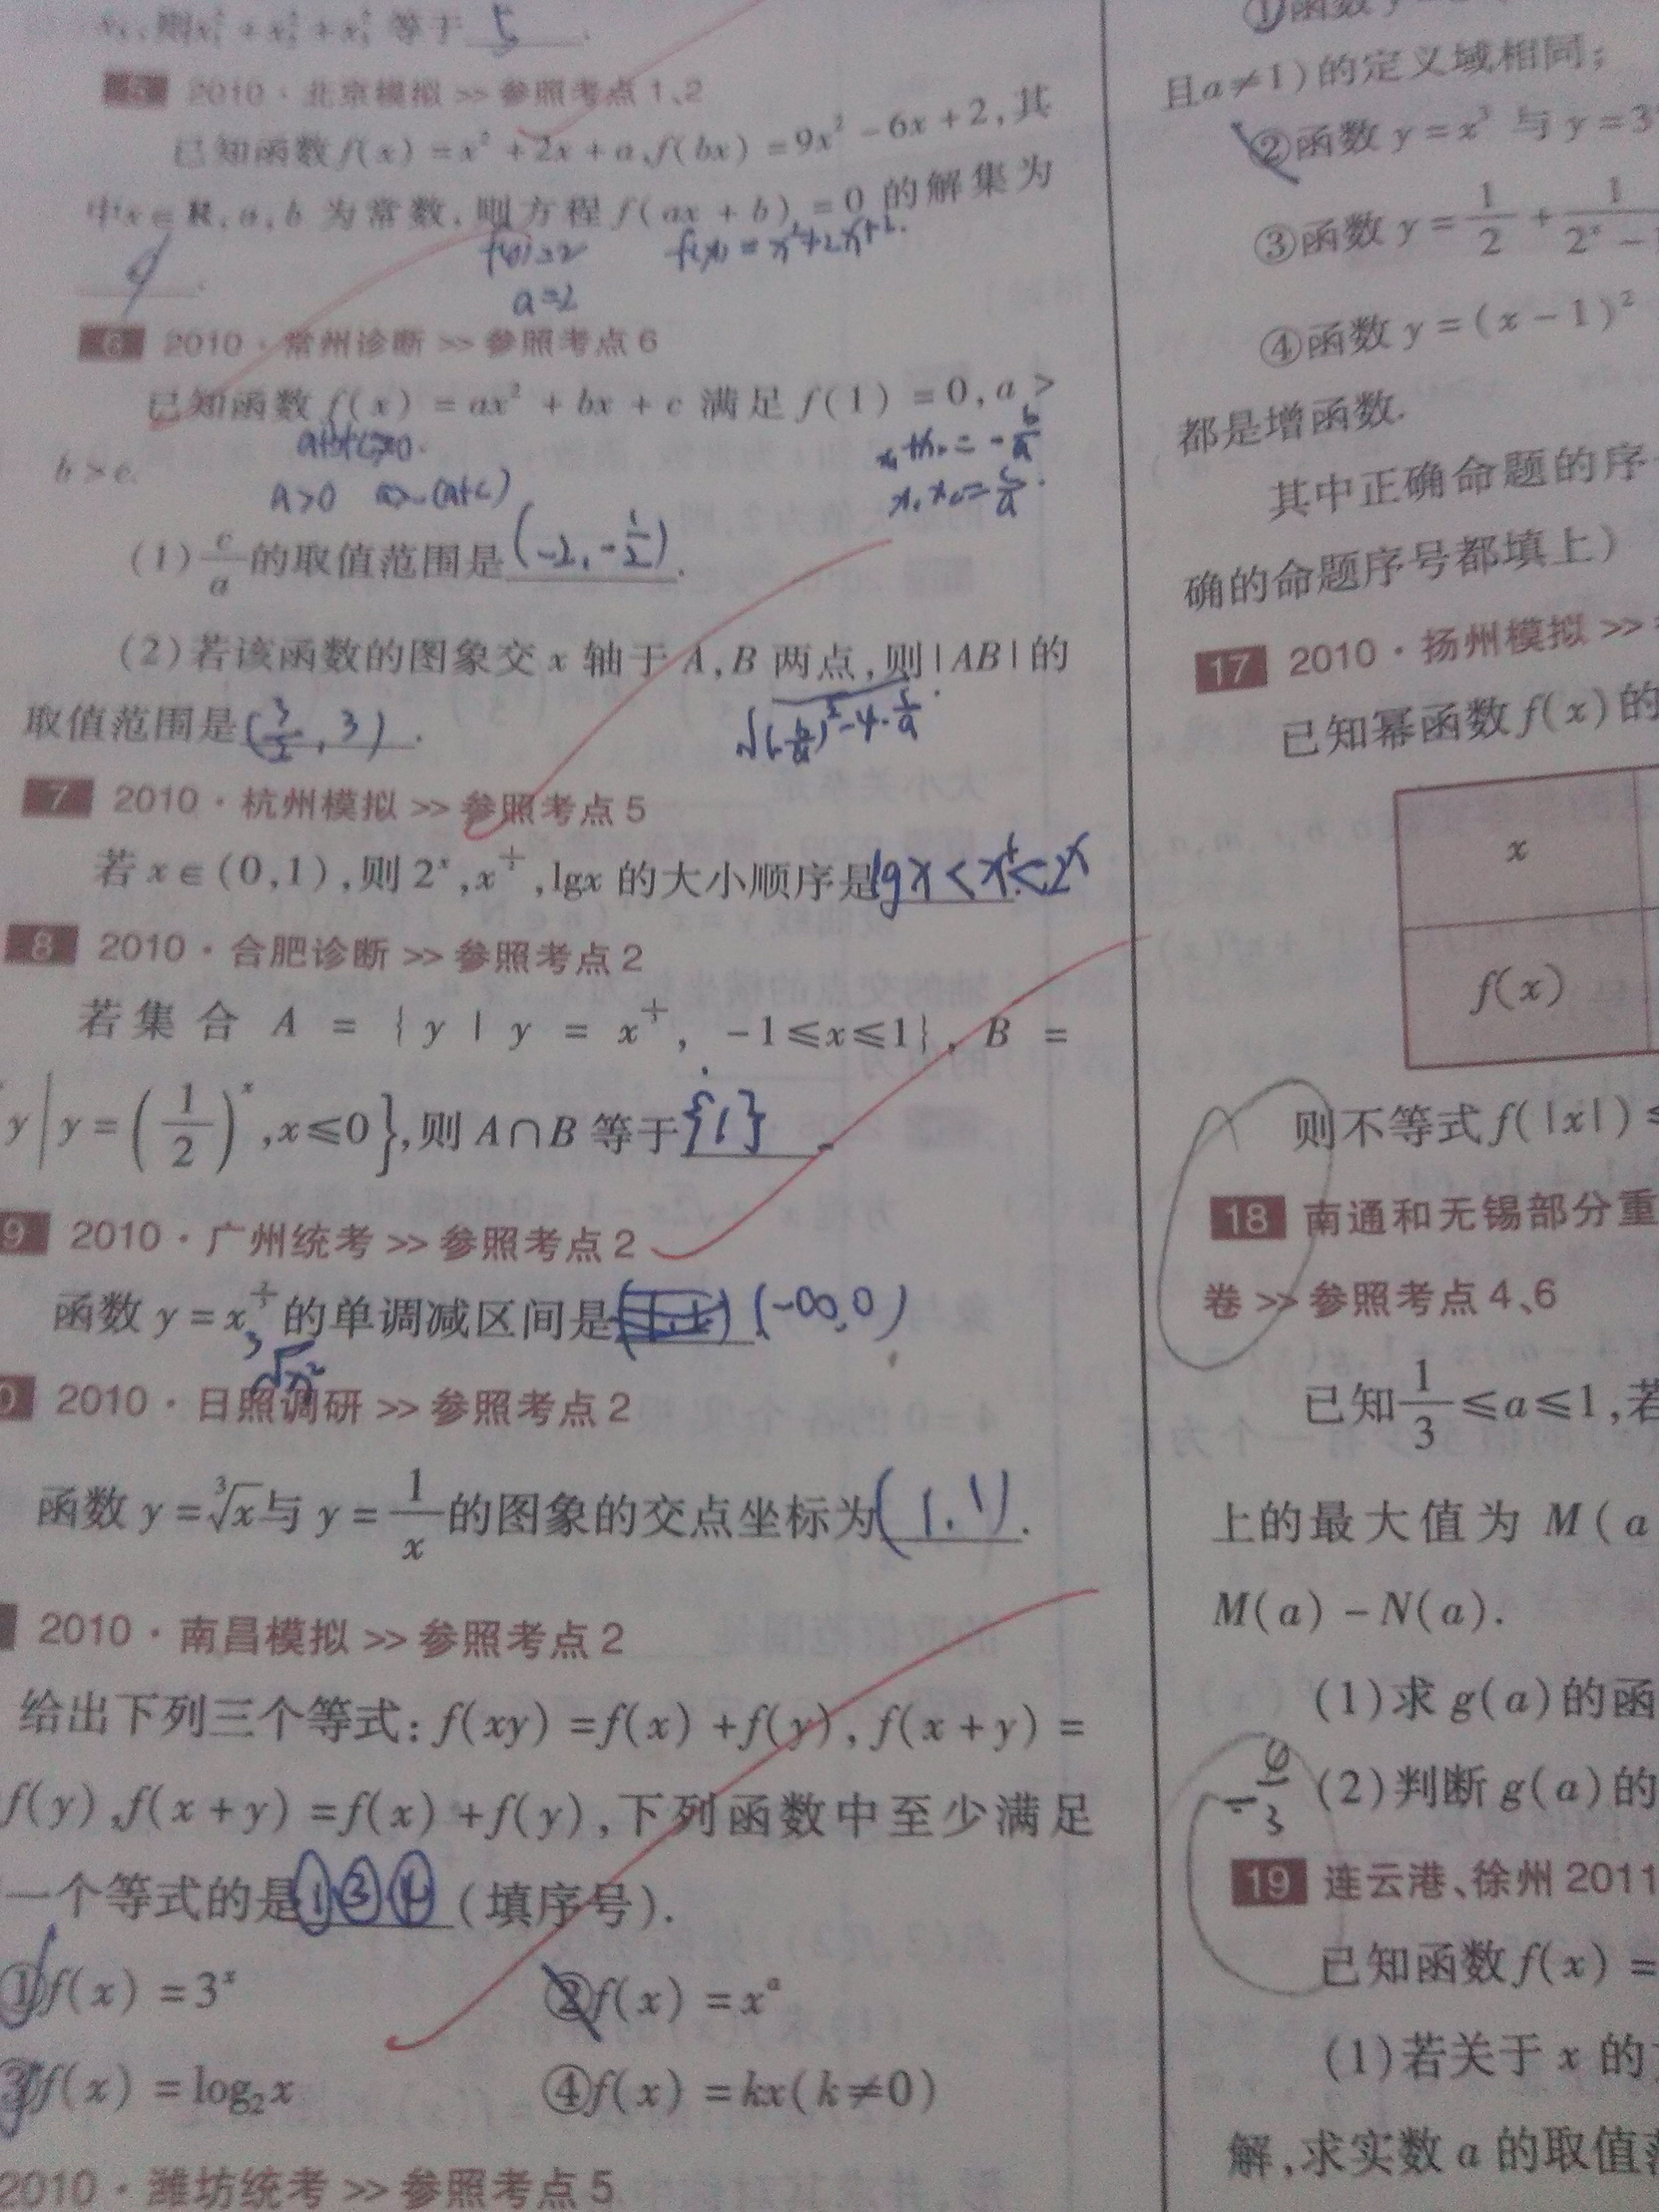 则x₁²+x₂²+x₃²等于 5 .
5 2010·北京模拟>>参照考点1、2
已知函数f(x)=x²+2x+a,f(bx)=9x²-6x+2,其
中x∈R,a,b 为常数,则方程 f(ax+b)=0 的解集为
f(0)=2 f(x)=x²+2x+2.
∅ .
a=2
6 2010·常州诊断>>参照考点6
已知函数 f(x)=ax²+bx+c 满足 f(1)=0,a>
b>c.
a+b+c=0.
x₁+x₂=-b/a
a>0 (a+c)
x₁x₂=c/a.
(1) c/a 的取值范围是 (-2,-1/2) .
(2)若该函数的图象交 x 轴于 A,B 两点,则|AB|的
取值范围是 (3/2,3) .
7 2010·杭州模拟>>参照考点5
若 x∈(0,1),则 2ˣ,x^½,lgx 的大小顺序是 lgx<x^½<2ˣ
8 2010·合肥诊断>>参照考点2
若集合 A = {y|y = x^⅓, -1≤x≤1}, B =
y|y=(1/2)ˣ,x≤0},则 A∩B 等于 {1}
9 2010·广州统考>>参照考点2
函数 y=x^⅔ 的单调减区间是 (-∞,0)
³√x²
0 2010·日照调研>>参照考点2
函数 y=³√x 与 y=1/x 的图象的交点坐标为 (1,1) .
2010·南昌模拟>>参照考点2
给出下列三个等式:f(xy)=f(x)+f(y),f(x+y)=
f(y),f(x+y)=f(x)+f(y),下列函数中至少满足
一个等式的是 ①③④ (填序号).
①f(x)=3ˣ ②f(x)=xᵃ
③f(x)=log₂x ④f(x)=kx(k≠0)
2010·潍坊统考>>参照考点5
①函数 y
且a≠1)的定义域相同;
②函数 y=x³ 与 y=3
③函数 y=1/2+1/(2ˣ-1
④函数 y=(x-1)²
都是增函数.
其中正确命题的序
确的命题序号都填上)
17 2010·扬州模拟>>
已知幂函数 f(x)的
x
f(x)
则不等式 f(|x|)≤
18 南通和无锡部分重
卷>>参照考点4、6
已知 1/3≤a≤1,若
上的最大值为 M(a
M(a)-N(a).
(1)求 g(a)的函
(2)判断 g(a)的
19 连云港、徐州2011
已知函数 f(x)=
(1)若关于 x 的
解,求实数 a 的取值